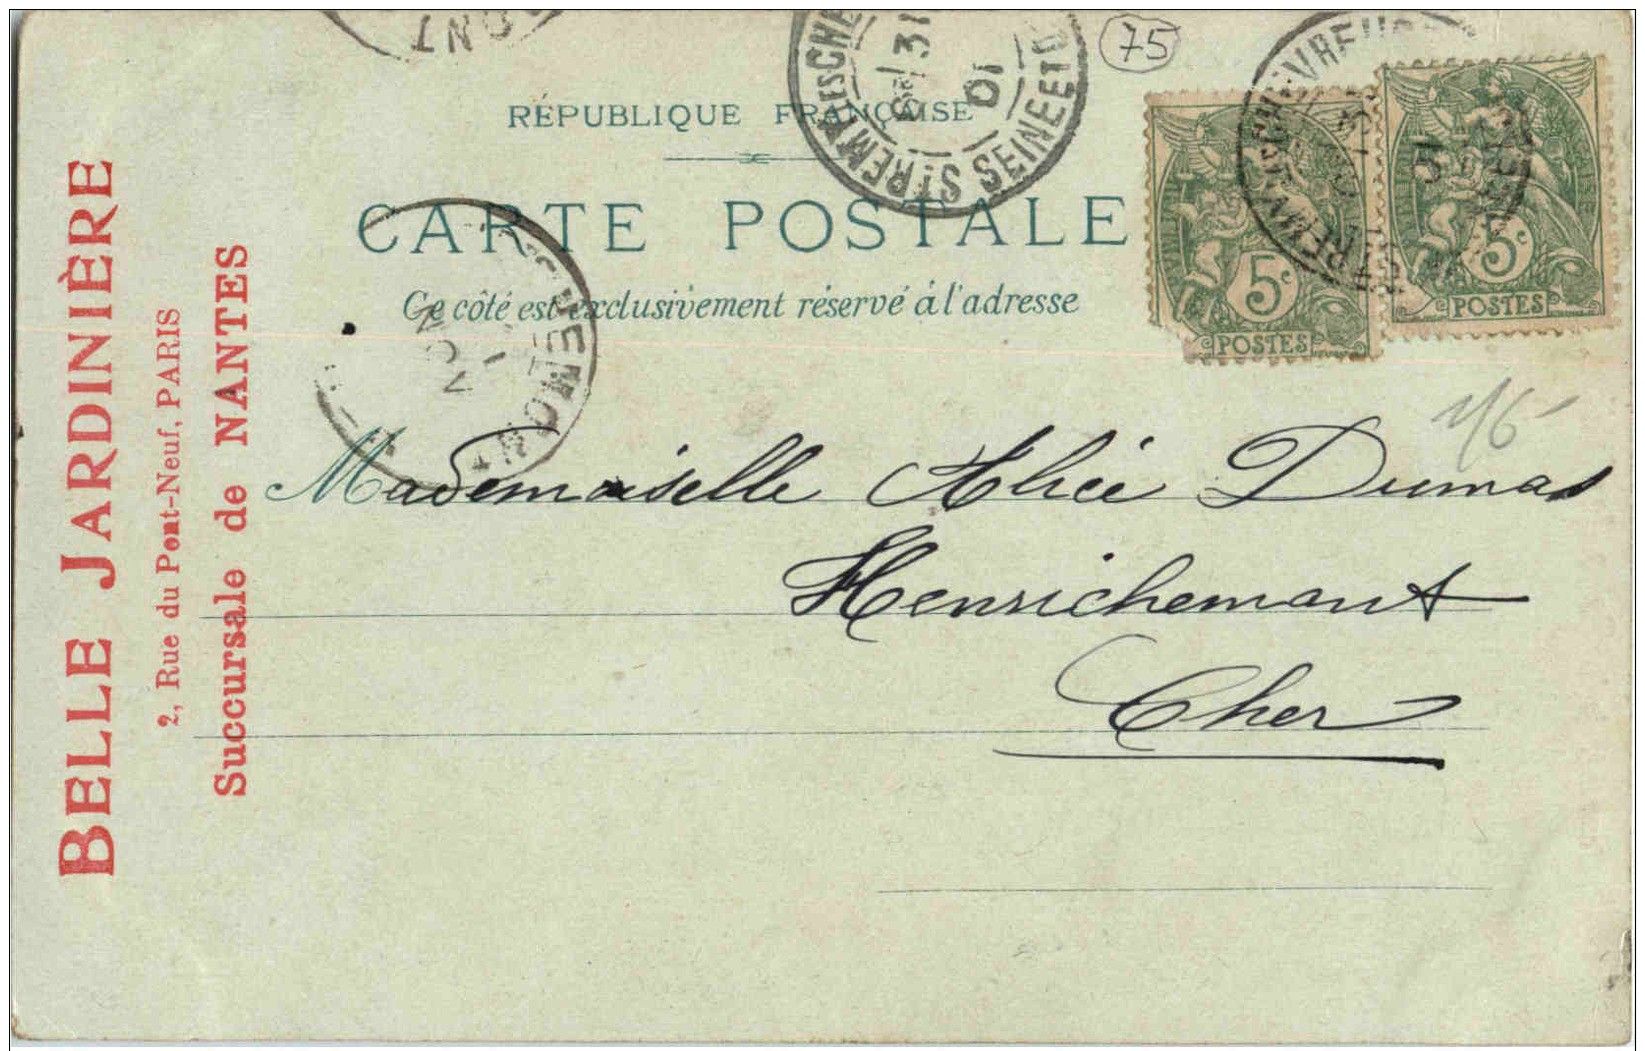 RÉPUBLIQUE FRANÇAISE
CARTE POSTALE
Ce côté est exclusivement réservé à l'adresse
BELLE JARDINIÈRE
2, Rue du Pont-Neuf, PARIS
Succursale de NANTES
75
5c
POSTES
5c
POSTES
31
01
SEINE ET O
Mademoiselle Alice Dumas
Henrichemont
Cher